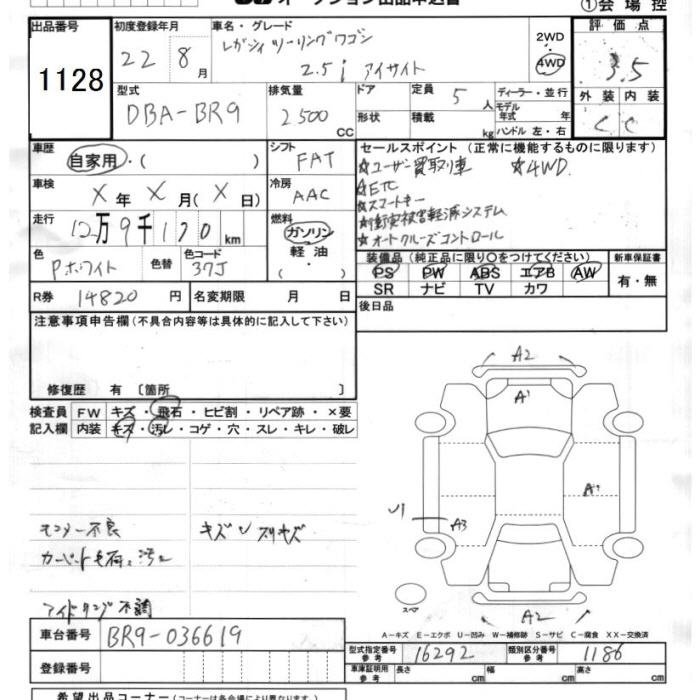 オークション出品申込書
①会場控
出品番号 初度登録年月 車名・グレード 評価点
1128 22年 8月 レガシィツーリングワゴン 2WD
2.5i アイサイト 4WD 3.5
型式 排気量 ドア 定員 ディーラー・並行 外装 内装
DBA-BR9 2500 CC 5人 モデル年式 年 C C
形状 積載 kg ハンドル 左・右
車歴 シフト セールスポイント(正常に機能するものに限ります)
自家用・( ) FAT ★ユーザー買取り車 ☆4WD
車検 冷房 ★ETC
X年 X月(X日) AAC ★スマートキー
走行 燃料 ★衝突被害軽減システム
12万9千170km ガソリン ★オートクルーズコントロール
軽油
色 色替 色コード ・ 装備品(純正品に限り○をつけてください) 新車保証書
Pホワイト 37J PS PW ABS エアB AW 有・無
SR ナビ TV カワ
R券 14820円 名変期限 月 日 後日品
注意事項申告欄(不具合内容等は具体的に記入して下さい)
修復歴 有〔箇所 〕
検査員 FW キズ・飛石・ヒビ割・リペア跡・×要
記入欄 内装 キズ・汚レ・コゲ・穴・スレ・キレ・破レ
A2
A1
A1
U1
A3
A2
スペア
モニター不良 キズU スリキズ
アイドリング不調
A-キズ E-エクボ U-凹み W-補修跡 S-サビ C-腐食 XX-交換済
車台番号 BR9-036619
型式指定番号 参考 16292 類別区分番号 参考 1186
登録番号 車庫証明用 参考 長さ cm 幅 cm 高さ cm
希望出品コーナー(コーナーは各会場により異なります)